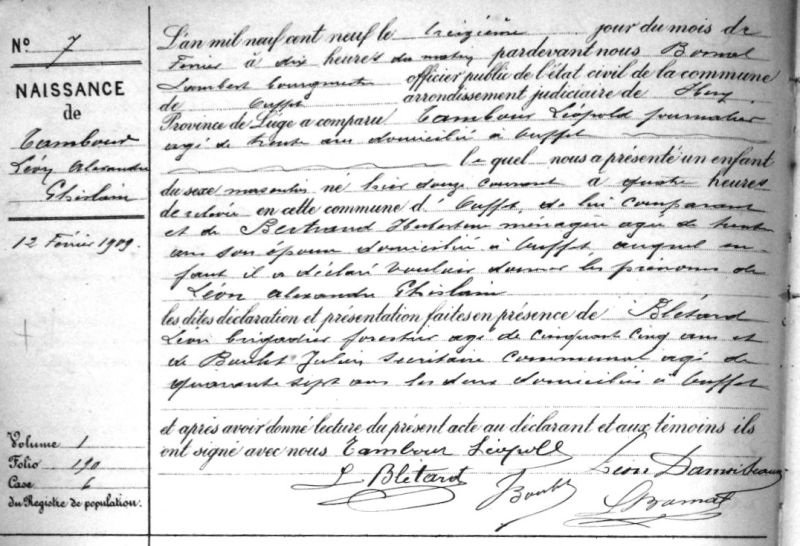 N° 7
NAISSANCE
de
Tambour
Léon Alexandre
Ghislain
12 Février 1909.
Volume 1
Folio 190
Case 6
du Registre de population:
L'an mil neuf cent neuf le treizième jour du mois de
Février à dix heures du matin pardevant nous Bomal
Lambert bourgmestre officier public de l'état civil de la commune
de Ouffet arrondissement judiciaire de Huy
Province de Liège a comparu Tambour Léopold journalier
agé de trente ans domicilié à Ouffet
le quel nous a présenté un enfant
du sexe masculin né hier douze courant à quatre heures
de relevée en cette commune d'Ouffet, de lui comparant
et de Bertrand Hubertine ménagère agée de trente
ans son épouse domiciliée à Ouffet auquel en-
fant il a déclaré vouloir donner les prénoms de
Léon Alexandre Ghislain
les dites déclaration et présentation faites en présence de Blétard
Léon brigadier forestier agé de cinquante cinq ans et
de Julien Secrétaire communal agé de
quarante sept ans les deux domiciliés à Ouffet
et après avoir donné lecture du présent acte au déclarant et aux témoins ils
ont signé avec nous Tambour Léopold
L Blétard Léon
L Bomal